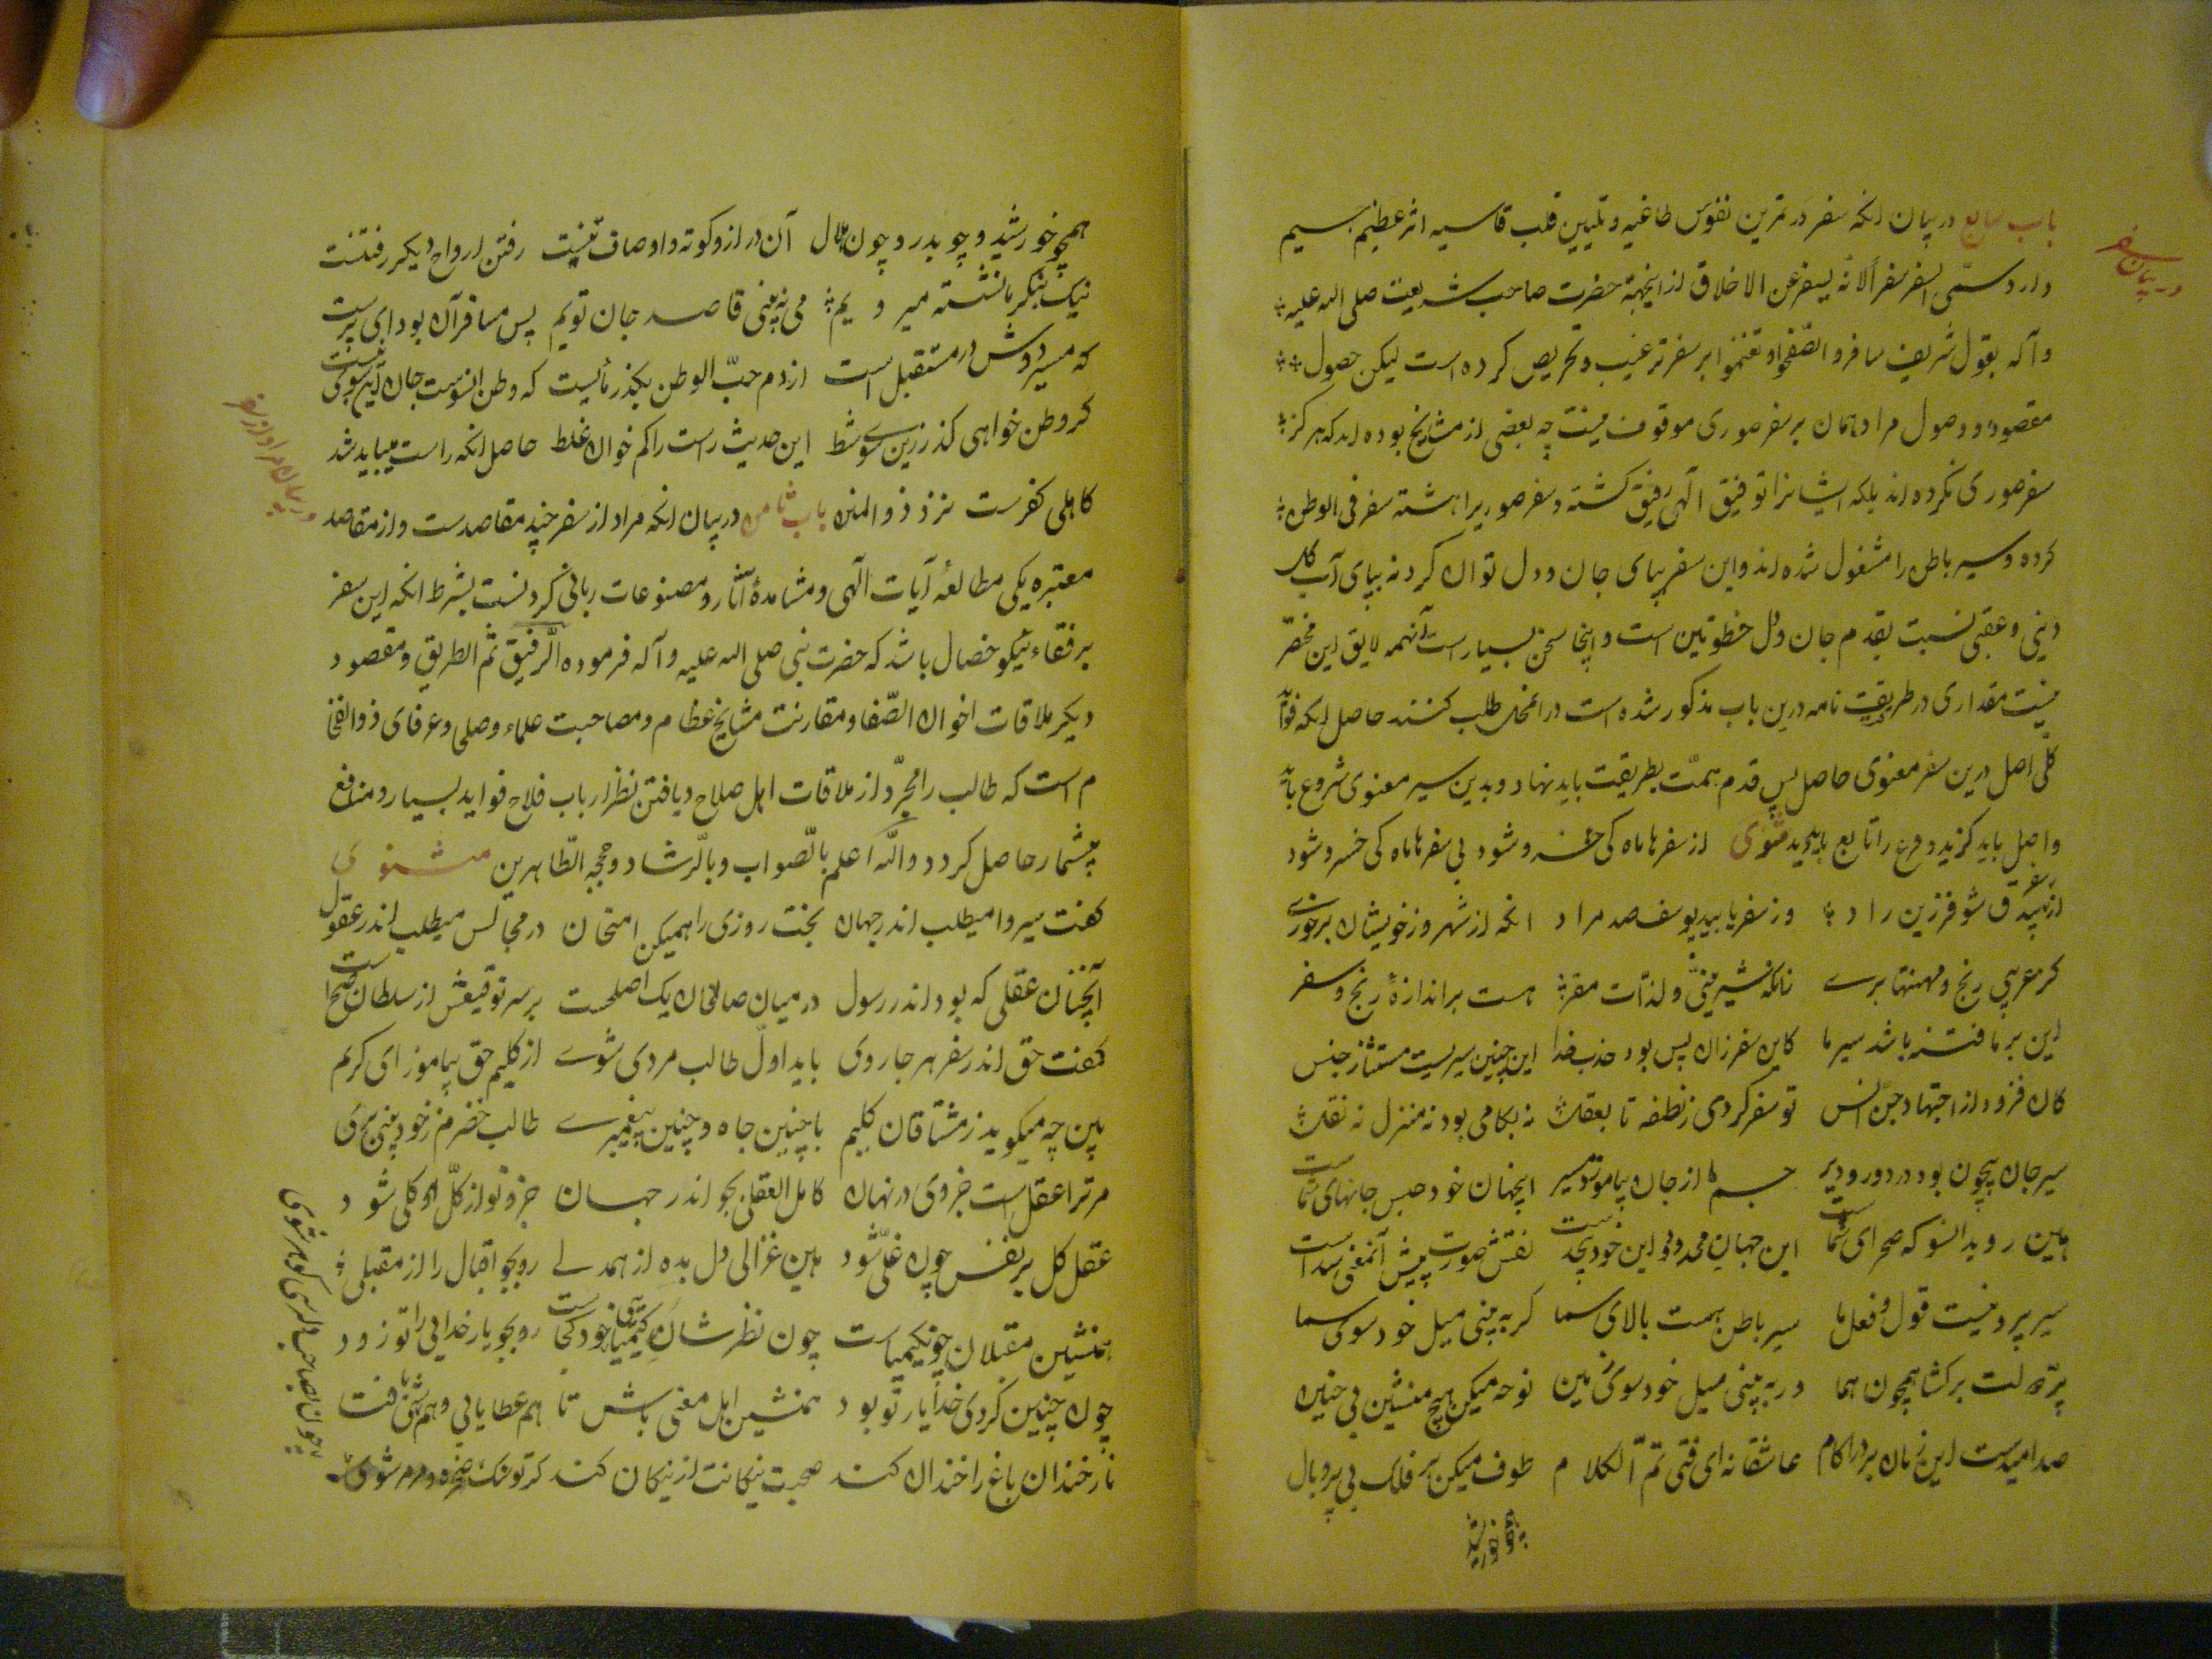 باب سابع در بیان انکه سفر در تمرین نفوس طاغیه و تلیین قلب قاسیه اثر عظیم جسیم
در بیان سفر
دارد و سمّی السفر سفراً لانّه یسفر عن الاخلاق از اینجهة حضرت صاحب شریعت صلی الله علیه
و آله بقول شریف سافروا تصّحوا و تغنموا بر سفر ترغیب و تحریص کرده است لیکن حصول
مقصود و وصول مراد همان بر سفر صوری موقوف نیست چه بعضی از مشایخ بوده اند که هرگز
سفر صوری نکرده اند بلکه ایشانرا توفیق الهی رفیق گشته و سفر صوریرا هشته سفر فی الوطن
کرده و سیر باطن را مشغول شده اند و این سفر بپای جان و دل توان کرد نه بپای آب و گل
دینی و عقبی نسبت بقدم جان و دل خطوتین است و اینجا سخن بسیار است آنهمه لایق این مختصر
نیست مقداری در طریقت نامه درین باب مذکور شده است در انمحل طلب کنند حاصل انکه فواید
کلّی اصل درین سفر معنوی حاصل پس قدم همّت بطریقت باید نهاد و بدین سیر معنوی شروع باید
و اصل باید گزید و فرع را تابع باید دید مثنوی از سفرها ماه کی خسرو شود بی سفرها ماه کی خسرو شود
از سفر بیدق شود فرزین راد وز سفر یابید یوسف صد مراد انکه از شهر و ز خویشان برخوری
کز غریبی رنج و مهنتها بری زانکه شیرینّی و لذّات مقر هست بر اندازهٔ رنج و سفر
این بر ما فتنه باشد سیر ما کاین سفر زان پس بود جذب خدا این چنین سیریست مستثنی ز جنس
کان فزود از اجتهاد جنّ و انس تو سفر کردی ز نطفه تا بعقل نه بکامی بود نه منزل نه نقل
سیر جان بیچون بود در دور و دیر جسم ما از جان بیاموزد سیر اینجهان خود حبس جانهای شماست
هین روید انسو که صحرای شماست این جهان محدود و این خود بیحدست نقش صورت پیش آنمعنی سدست
سیر بیرونیست قول و فعل ما سیر باطن هست بالای سما گر به بینی میل خود سوی سما
پرّ دولت برکشا همچون هما ور به بینی میل خود سوی زمین نوحه میکن هیچ منشین بی حنین
صد امیدست این زمان بردار گام عاشقانه ای فتی تمّ الکلام طوف میکن بر فلک بی پر و بال
همچو خورشید
همچو خورشید و چو بدر و چون هلال آن دراز و کوته و اوصاف تنیست رفتن ارواح دیگر رفتنیست
نیک بنگر ما نشسته میرویم می نه بینی قاصد جان تویم پس مسافر آن بود ای پرست
که مسیر و روش در مستقبل است از دم حبّ الوطن بگذر مأیست که وطن انسوست جان این سوی نیست
گر وطن خواهی گذر زین سوی شط این حدیث راست را کم خوان غلط حاصل انکه راست میباید شد
کاهلی کفرست نزد ذو المنن باب ثامن در بیان انکه مراد از سفر چند مقاصدست و از مقاصد
در بیان مراد از سفر
معتبره یکی مطالعهٔ آیات الهی و مشاهدهٔ آثار و مصنوعات ربانی کردنست بشرط انکه این سفر
برفقاء نیکو خصال باشد که حضرت نبی صلی الله علیه و آله فرموده الرّفیق ثم الطریق و مقصود
دیگر ملاقات اخوان الصّفا و مقارنت مشایخ عظام و مصاحبت علماء و صلحی و عرفای ذو الفخا
م است که طالب را مجرّد از ملاقات اهل صلاح و یافتن نظر ارباب فلاح فواید بسیار و منافع
بیشمار حاصل گردد والله اعلم بالصّواب و بالرّشاد و حججه الطّاهرین مثنوی
گفت سیروا میطلب اندر جهان بخت روزی را همیکن امتحان در مجالس میطلب اندر عقول
آنچنان عقلی که بود اندر رسول در میان صالحان یک اصلحست بر سر توقیعش از سلطان صحست
گفت حق اندر سفر هر جا روی باید اول طالب مردی شوی از کلیم حق بیاموز ای کریم
بین چه میگوید ز مشتاقان کلیم با چنین جاه و چنین پیغمبری طالب خضرم ز خود بینی بری
مر ترا عقلست جزوی در نهان کامل العقلی بجو اندر جهان جزو تو از کلّ او کلی شود
عقل کل بر نفس چون غلّی شود هین غزالی دل بده از همدلی رو بجو اقبال را از مقبلی
همنشین مقبلان چون کیمیاست چون نظرشان کیمیائی خود کجاست رو بجو یار خدایی را تو زود
چون چنین کردی خدا یار تو بود همنشین اهل معنی باش تا هم عطا یابی و هم باشی فتا
نار خندان باغ را خندان کند صحبت نیکانت از نیکان کند گر تو سنگ صخره و مرمر شوی
چون بصاحب دل رسی گوهر شوی